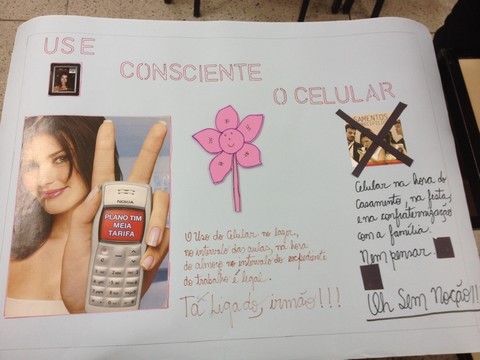 USE
CONSCIENTE
O CELULAR
NOKIA
PLANO TIM
MEIA
TARIFA
O Uso do Celular no lazer,
no intervalo das aulas, na hora
do almoço no intervalo do expediente
do trabalho é legal.
Tá Ligado, irmão!!!
Celular na hora do
Casamento, na festa,
e na confraternização
com a família.
Nem pensar.
Oh Sem Noção!!